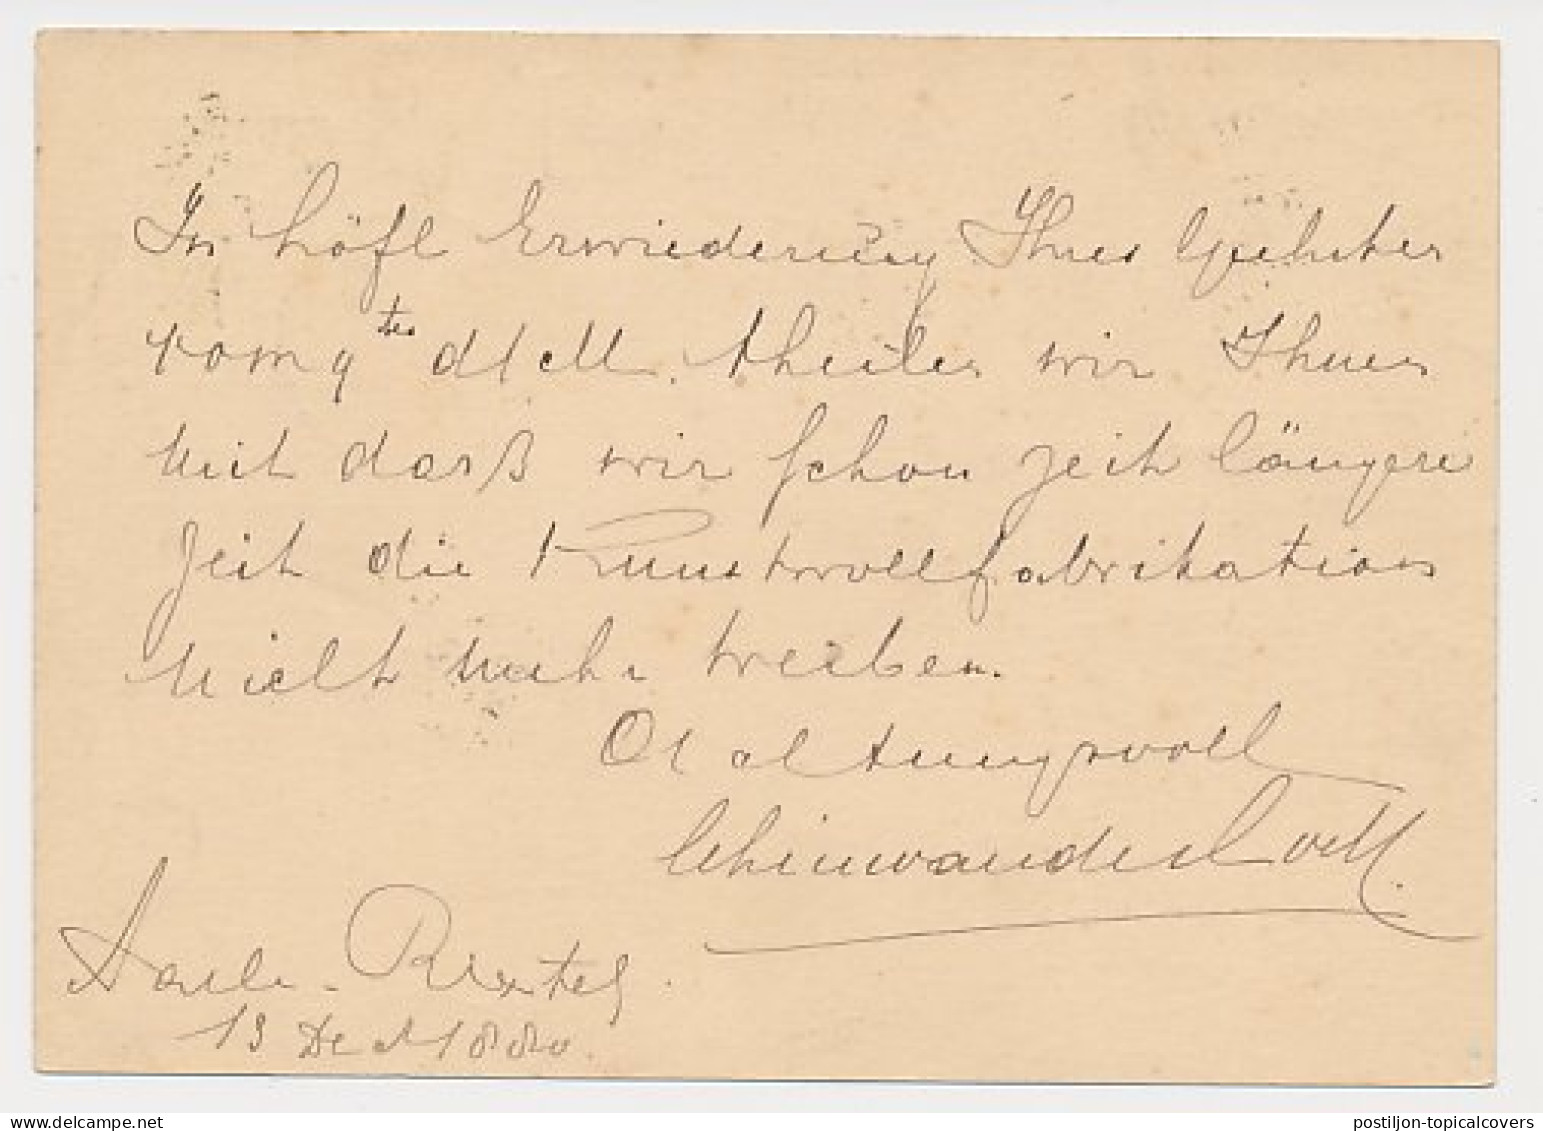 In höfl Erwiederung Ihres Geehrten
vom 9ten d/M. theilen wir Ihnen
mit daß wir schon zeit längere
Zeit die Kunstwollfabrikation
nicht mehr treiben.
Achtungsvoll
Aarle-Rixtel.
13 Dec 1880.
postiljon-topicalcovers